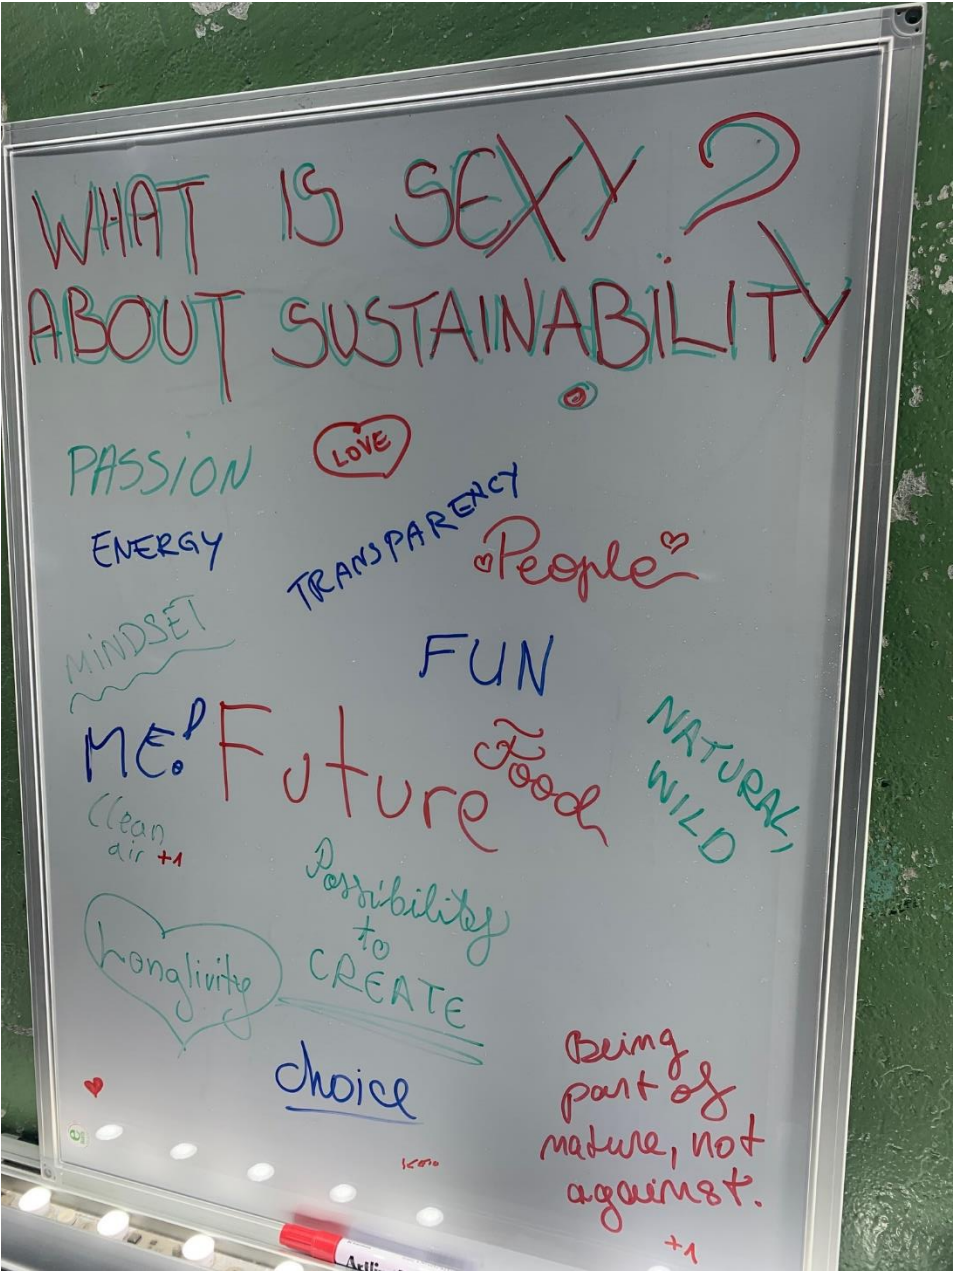 WHAT IS SEXY?
ABOUT SUSTAINABILITY
PASSION
LOVE
ENERGY
TRANSPARENCY
People
MiNDSET
FUN
ME!
Future
Food
NATURAL,
WILD
Clean
air +1
Possibility
to
CREATE
Longlivity
choice
Being
part of
nature, not
against.
+1